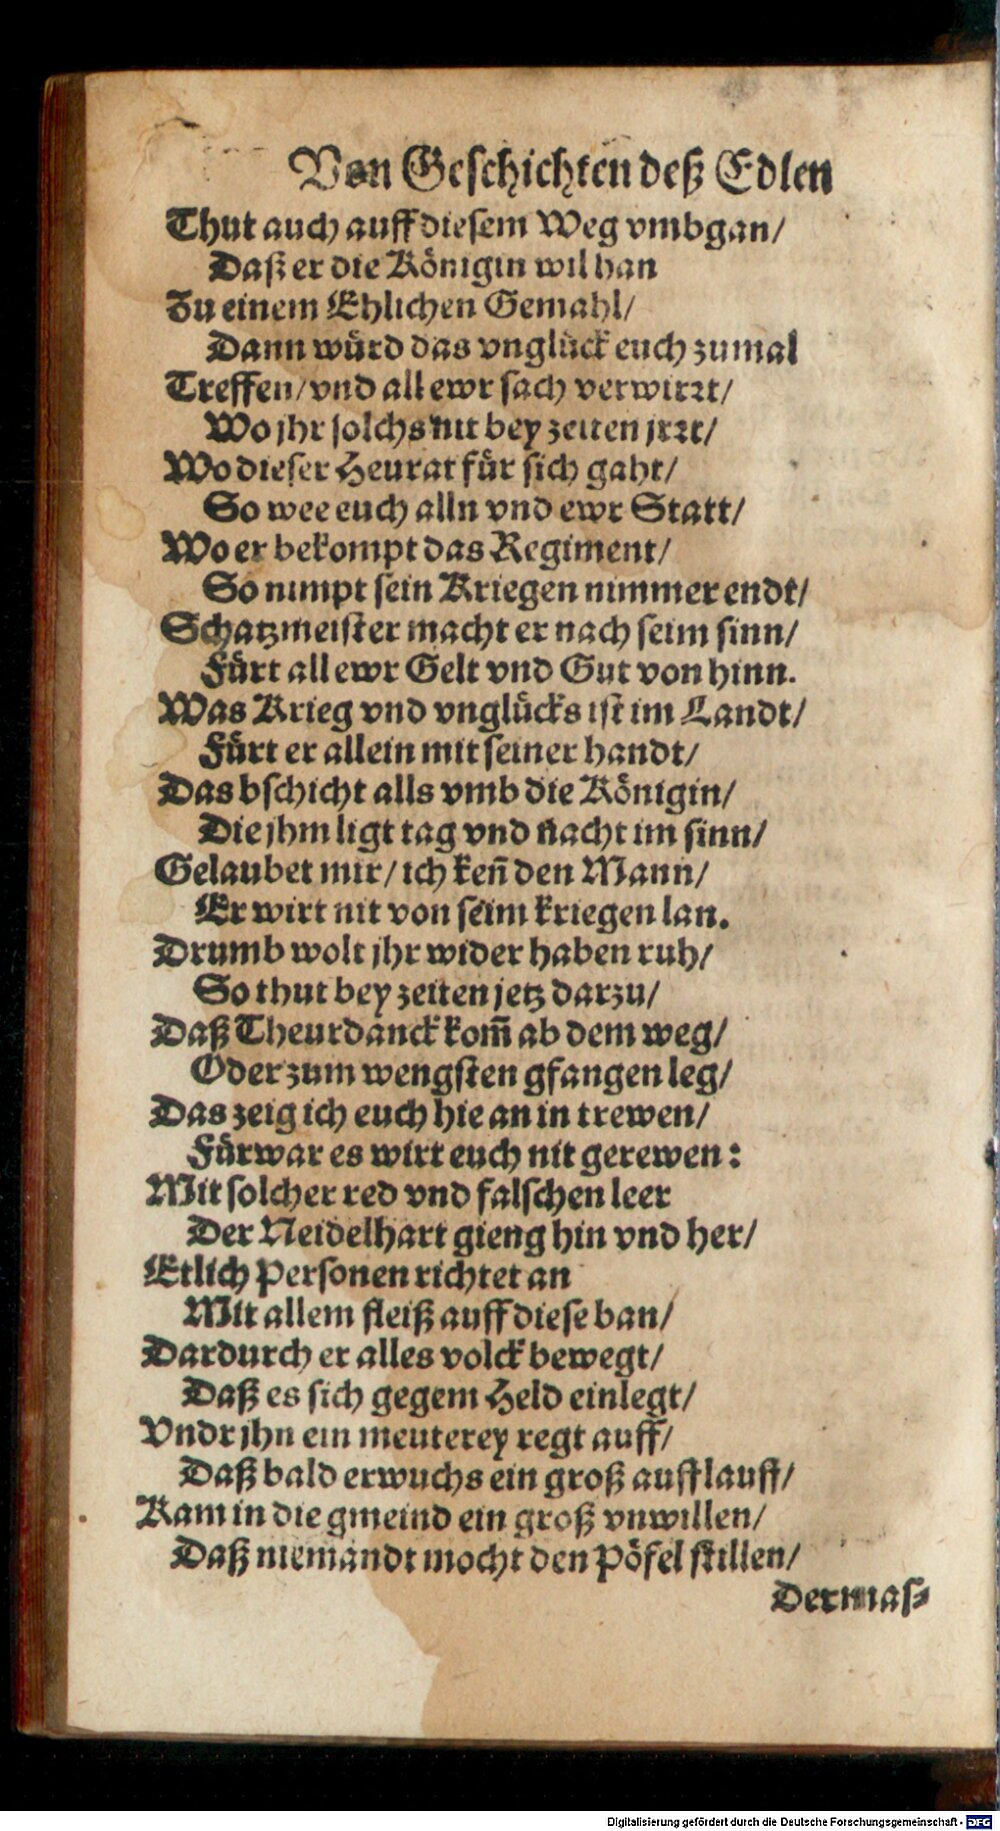 Von Geschichten deß Edlen
Thut auch auff diesem Weg vmbgan/
Daß er die Königin wil han
Zu einem Ehlichen Gemahl/
Dann würd das vnglück euch zumal
Treffen/ vnd all ewr sach verwirrt/
Wo jhr solchs nit bey zeiten jrrt/
Wo dieser Heurat für sich gaht/
So wee euch alln vnd ewr Statt/
Wo er bekompt das Regiment/
So nimpt sein Kriegen nimmer endt/
Schatzmeister macht er nach seim sinn/
Fürt all ewr Gelt vnd Gut von hinn.
Was Krieg vnd vnglücks ist im Landt/
Fürt er allein mit seiner handt/
Das bschicht alls vmb die Königin/
Die jhm ligt tag vnd nacht im sinn/
Gelaubet mir/ ich keñ den Mann/
Er wirt nit von seim kriegen lan.
Drumb wolt jhr wider haben ruh/
So thut bey zeiten jetz darzu/
Daß Theurdanck kom̃ ab dem weg/
Oder zum wengsten gfangen leg/
Das zeig ich euch hie an in trewen/
Fürwar es wirt euch nit gerewen:
Mit solcher red vnd falschen leer
Der Neidelhart gieng hin vnd her/
Etlich Personen richtet an
Mit allem fleiß auff diese ban/
Dardurch er alles volck bewegt/
Daß es sich gegem Held einlegt/
Vndr jhn ein meuterey regt auff/
Daß bald erwuchs ein groß aufflauff/
Kam in die gmeind ein groß vnwillen/
Daß niemandt mocht den Pöfel stillen/
Dermas-
Digitalisierung gefördert durch die Deutsche Forschungsgemeinschaft - DFG